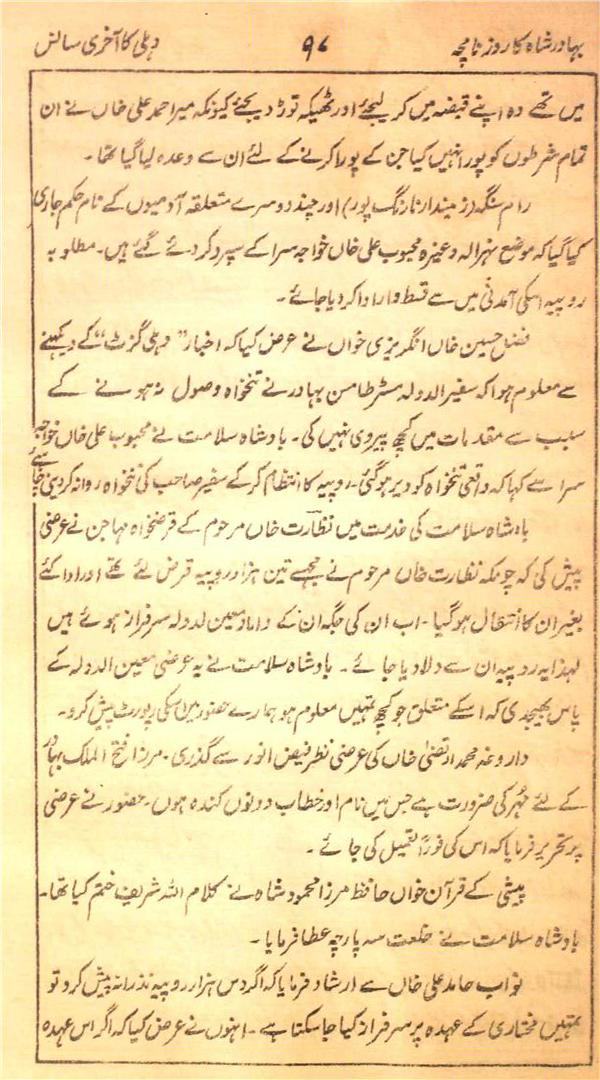 بہادر شاہ کا روزنامچہ ۹۷ دہلی کا آخری سانس
میں تھے وہ اپنے قبضہ میں کر لیجئے اور ٹھیکہ توڑ دیجئے کیونکہ میر احمد علی خاں نے ان
تمام شرطوں کو پورا نہیں کیا جن کے پورا کرنے کے لئے ان سے وعدہ لیا گیا تھا۔
رام سنگھ (زمیندار نارنگ پور) اور چند دوسرے متعلقہ آدمیوں کے نام حکم جاری
کیا گیا کہ موضع نہرالہ وغیرہ محبوب علی خاں خواجہ سرا کے سپرد کر دئے گئے ہیں۔ مطلوبہ
روپیہ اسکی آمدنی میں سے قسط وار ادا کر دیا جائے۔
فضل حسین خاں انگریزی خواں نے عرض کیا کہ اخبار "دہلی گزٹ" کے دیکھنے
سے معلوم ہوا کہ سفیر الدولہ مسٹر طامس بہادر نے تنخواہ وصول نہ ہونے کے
سبب سے مقدمات میں کچھ پیروی نہیں کی۔ بادشاہ سلامت نے محبوب علی خاں خواجہ
سرا سے کہا کہ واقعی تنخواہ کو دیر ہوگئی۔ روپیہ کا انتظام کرکے سفیر صاحب کی تنخواہ روانہ کر دینی چاہئے
بادشاہ سلامت کی خدمت میں نظارت خاں مرحوم کے قرضخواہ مہاجن نے عرضی
پیش کی کہ چونکہ نظارت خاں مرحوم نے مجھسے تین ہزار روپیہ قرض لئے تھے اور ادا کئے
بغیر ان کا انتقال ہوگیا۔ اب ان کی جگہ ان کے داماد معین لدولہ سرفراز ہوئے ہیں
لہذا یہ روپیہ ان سے دلا دیا جائے۔ بادشاہ سلامت نے یہ عرضی معین الدولہ کے
پاس بھیجدی کہ اسکے متعلق جو کچھ تمہیں معلوم ہو ہمارے حضور میں اسکی رپورٹ پیش کرو۔
داروغہ محمد ارتضیٰ خاں کی عرضی نظر فیض انور سے گذری۔ مرزا فتح الملک بہادر
کے لئے مُہر کی ضرورت ہے جس میں نام اور خطاب دونوں کندہ ہوں۔ حضور نے عرضی
پر تحریر فرمایا کہ اس کی فوراً تعمیل کی جائے۔
پیشی کے قرآن خواں حافظ مرزا محمود شاہ نے کلام اللہ شریف ختم کیا تھا۔
بادشاہ سلامت نے خلعت سہ پارچہ عطا فرمایا۔
نواب حامد علی خاں سے ارشاد فرمایا کہ اگر دس ہزار روپیہ نذرانہ پیش کرو تو
تمہیں مختاری کے عہدہ پر سرفراز کیا جاسکتا ہے۔ انہوں نے عرض کیا کہ اگر اس عہدہ